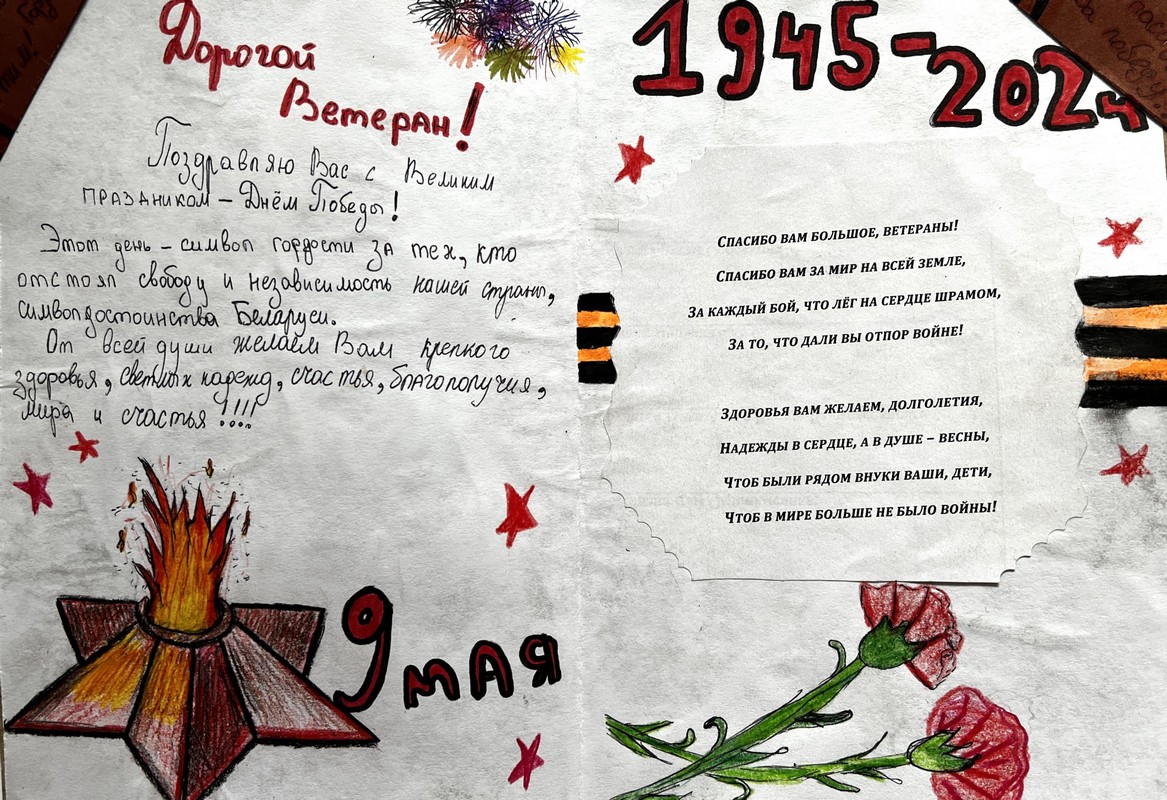 Дорогой
Ветеран!
Поздравляю Вас с Великим
праздником – Днём Победы!
Этот день – символ гордости за тех, кто
отстоял свободу и независимость нашей страны,
символ достоинства Беларуси.
От всей души желаем Вам крепкого
здоровья, светлых надежд, счастья, благополучия,
мира и счастья !!!!
9 мая
1945-2024
Спасибо вам большое, ветераны!
Спасибо вам за мир на всей земле,
За каждый бой, что лёг на сердце шрамом,
За то, что дали вы отпор войне!
Здоровья вам желаем, долголетия,
Надежды в сердце, а в душе – весны,
Чтоб были рядом внуки ваши, дети,
Чтоб в мире больше не было войны!